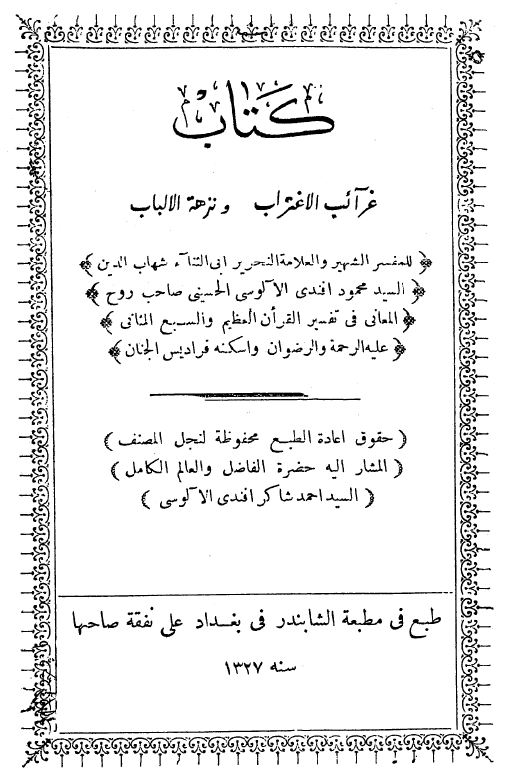 كتاب
غرآئب الاغتراب ونزهة الالباب
﴿ للمفسر الشهير والعلامة النحرير ابى الثنآء شهاب الدين ﴾
﴿ السيد محمود افندى الآلوسى الحسينى صاحب روح ﴾
﴿ المعانى فى تفسير القرأن العظيم والسبع المثانى ﴾
﴿ عليه الرحمة والرضوان واسكنه فراديس الجنان ﴾
( حقوق اعادة الطبع محفوظة لنجل المصنف )
( المشار اليه حضرة الفاضل والعالم الكامل )
( السيد احمد شاكر افندى الآلوسى )
طبع فى مطبعة الشابندر فى بغداد على نفقة صاحبها
سنه ١٣٢٧